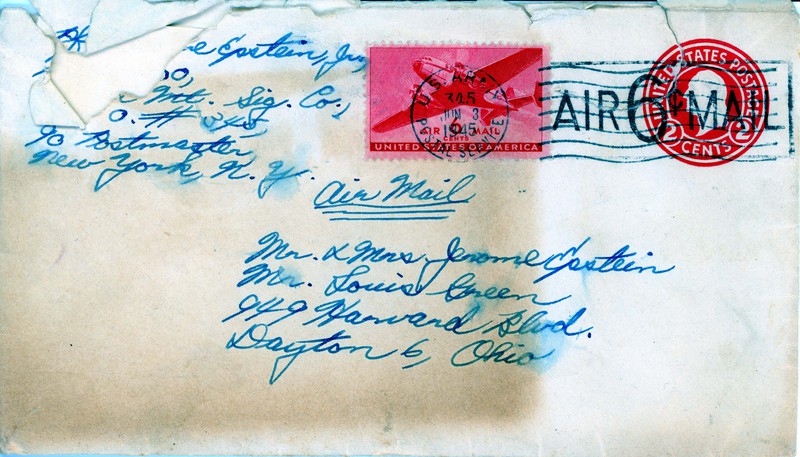 Epstein, Jr.,
Mt. Sig. Co.,
O. # 345
℅ Postmaster
New York, N. Y.
U.S. ARMY
345
JUN 3
1945
POSTAL SERVICE
AIR MAIL
6 CENTS
UNITED STATES OF AMERICA
AIR 6¢ MAIL
UNITED STATES POSTAGE
2 2
CENTS
Air Mail
Mr. & Mrs. Jerome Epstein
Mr. Louis Green
949 Harvard Blvd.
Dayton 6, Ohio